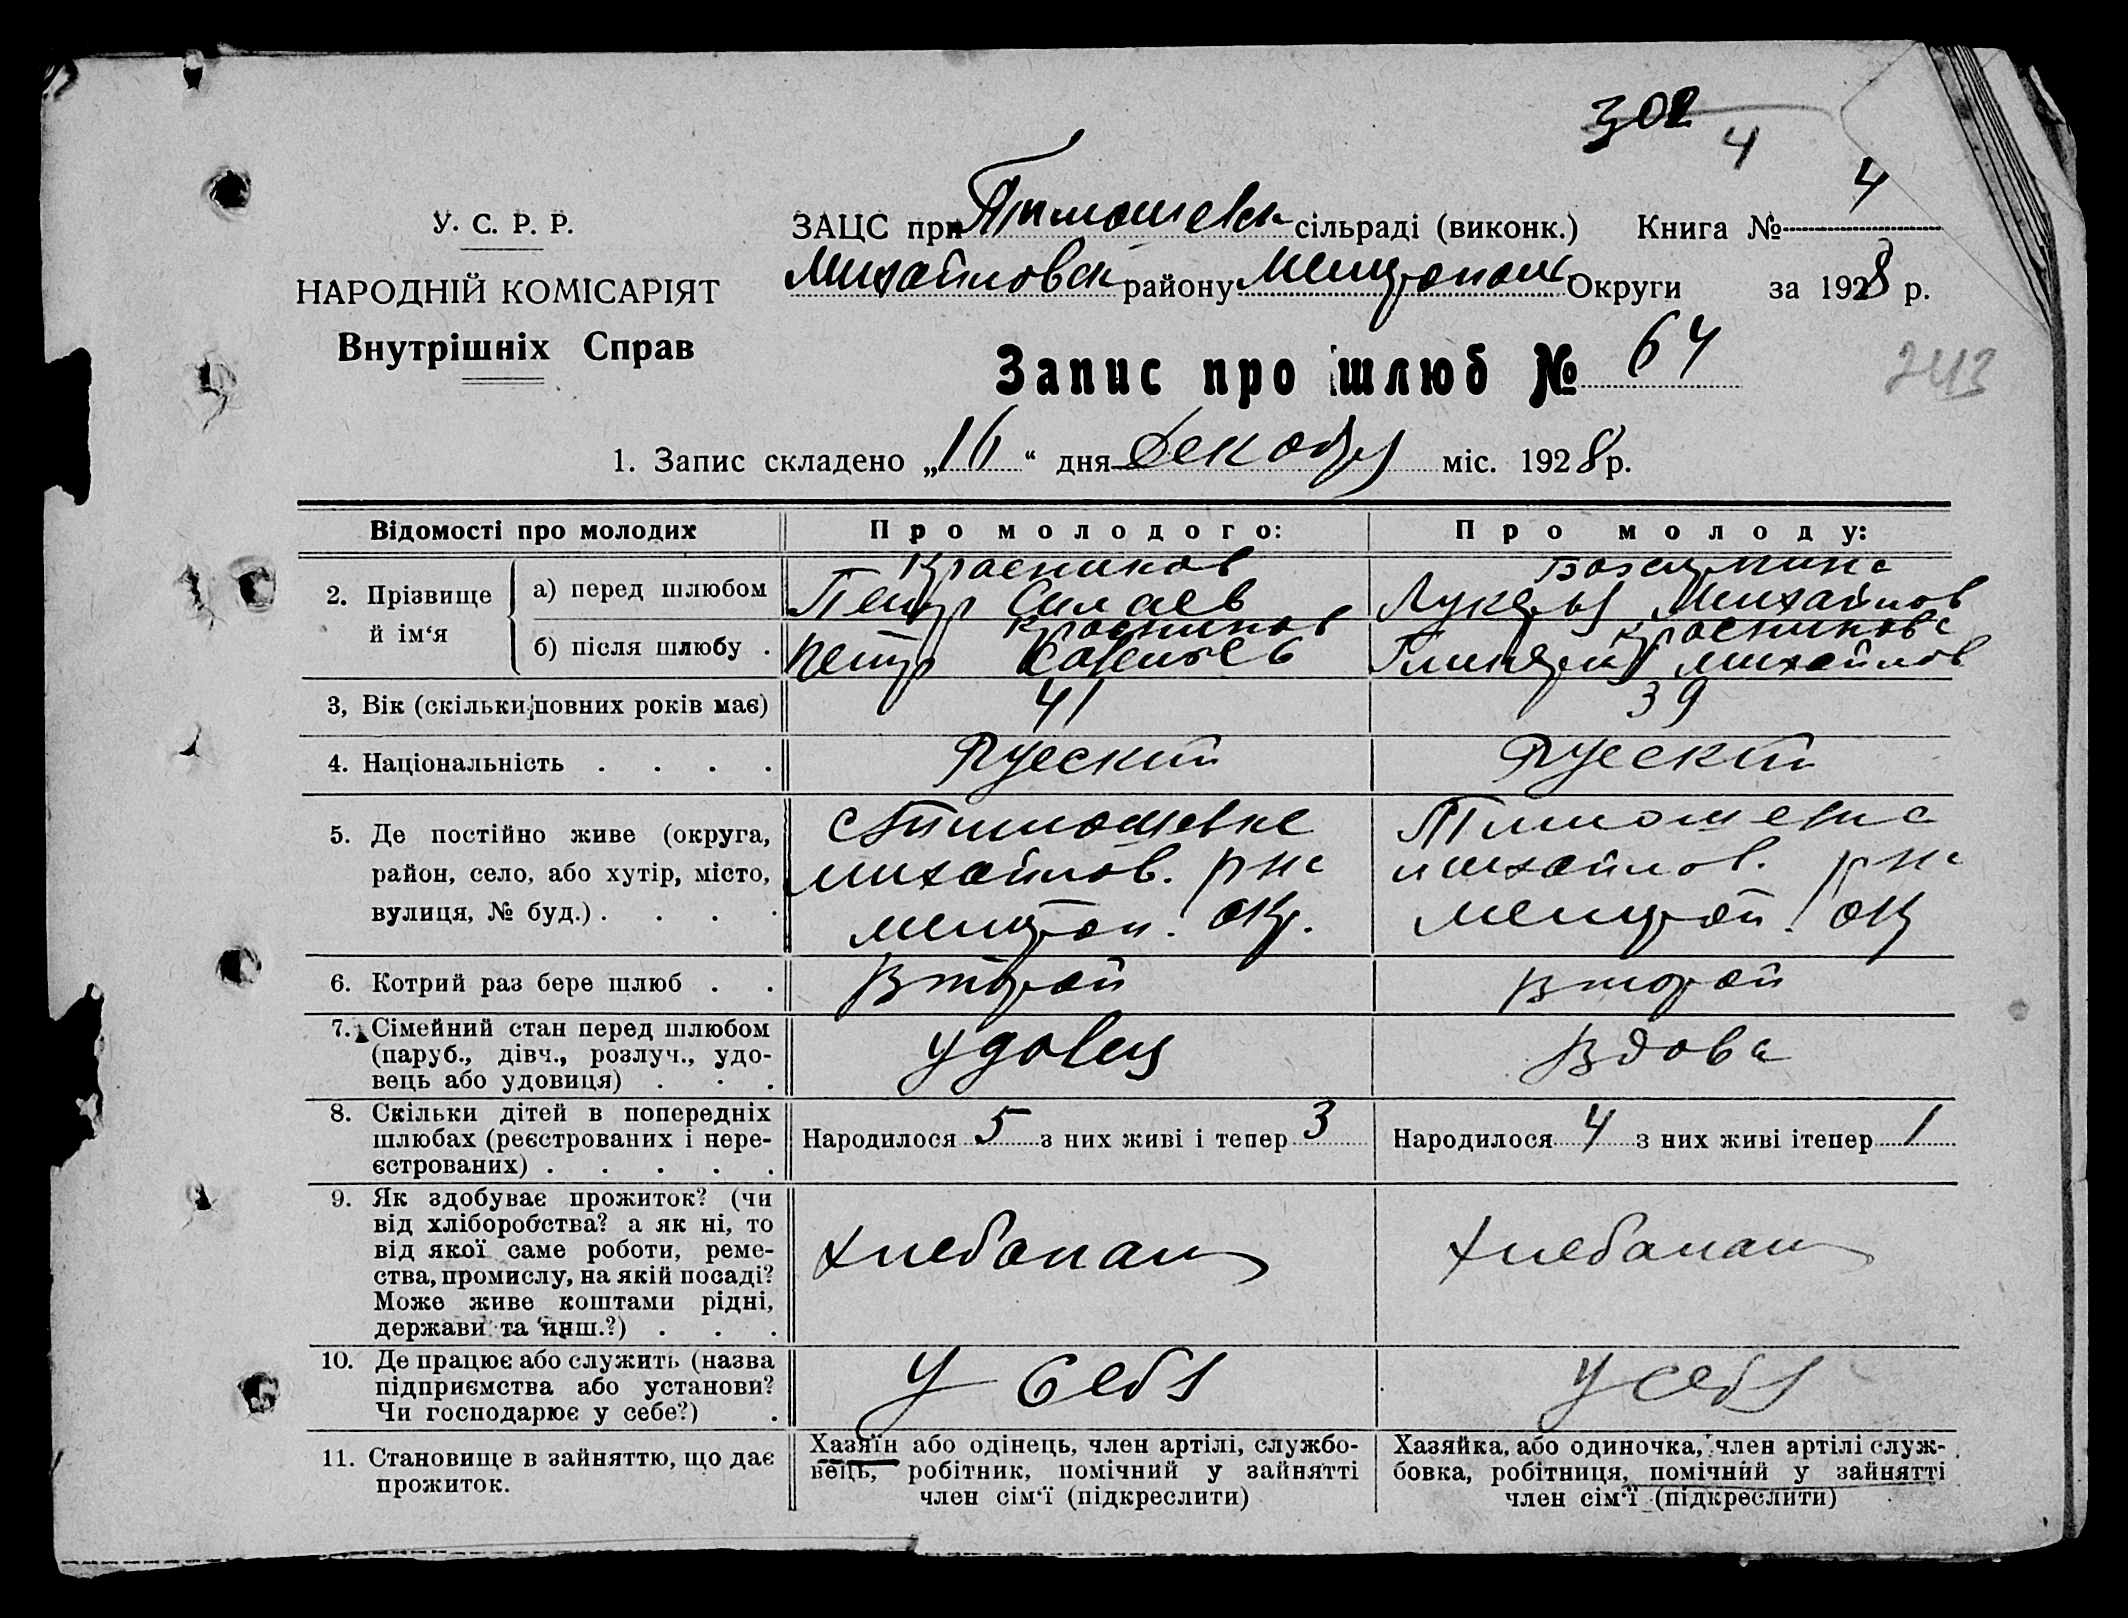 302
4
У. С. Р. Р.
НАРОДНІЙ КОМІСАРІЯТ
Внутрішніх Справ
ЗАЦС при Тимошевск сільраді (виконк.) Книга № 4
Михайловск району Мелитопол Округи за 1928 р.
Запис про шлюб № 64
243
1. Запис складено „16“ дня Декабря міс. 1928 р.
Відомості про молодих Про молодого: Про молоду:
2. Прізвище й ім‘я
а) перед шлюбом Красников Петр Силаев Михайлов
б) після шлюбу . Красников Петр Красникова Михайлов
3, Вік (скільки повних років має) 41 39
4. Національність . . . . Руский Руский
5. Де постійно живе (округа, с Тимошевке Тимошевка
район, село, або хутір, місто, михайлов. рна михайлов. рна
вулиця, № буд.) . . . . мелитоп. окр. мелитоп. ок
6. Котрий раз бере шлюб . . Второй второй
7. Сімейний стан перед шлюбом
(паруб., дівч., розлуч., удо- удовец Вдова
вець або удовиця) . . .
8. Скільки дітей в попередніх
шлюбах (реєстрованих і нере- Народилося 5 з них живі і тепер 3 Народилося 4 з них живі ітепер 1
єстрованих) . . . . .
9. Як здобуває прожиток? (чи
від хліборобства? а як ні, то
від якої саме роботи, реме- хлебопаш хлебопаш
ства, промислу, на якій посаді?
Може живе коштами рідні,
держави та инш.?) . . .
10. Де працює або служить (назва
підприємства або установи? У себя у себя
Чи господарює у себе?) .
11. Становище в зайняттю, що дає Хазяїн або одінець, член артілі, службо- Хазяйка, або одиночка, член артілі служ-
прожиток. вець, робітник, помічний у зайнятті бовка, робітниця, помічний у зайнятті
член сім‘ї (підкреслити) член сім‘ї (підкреслити)